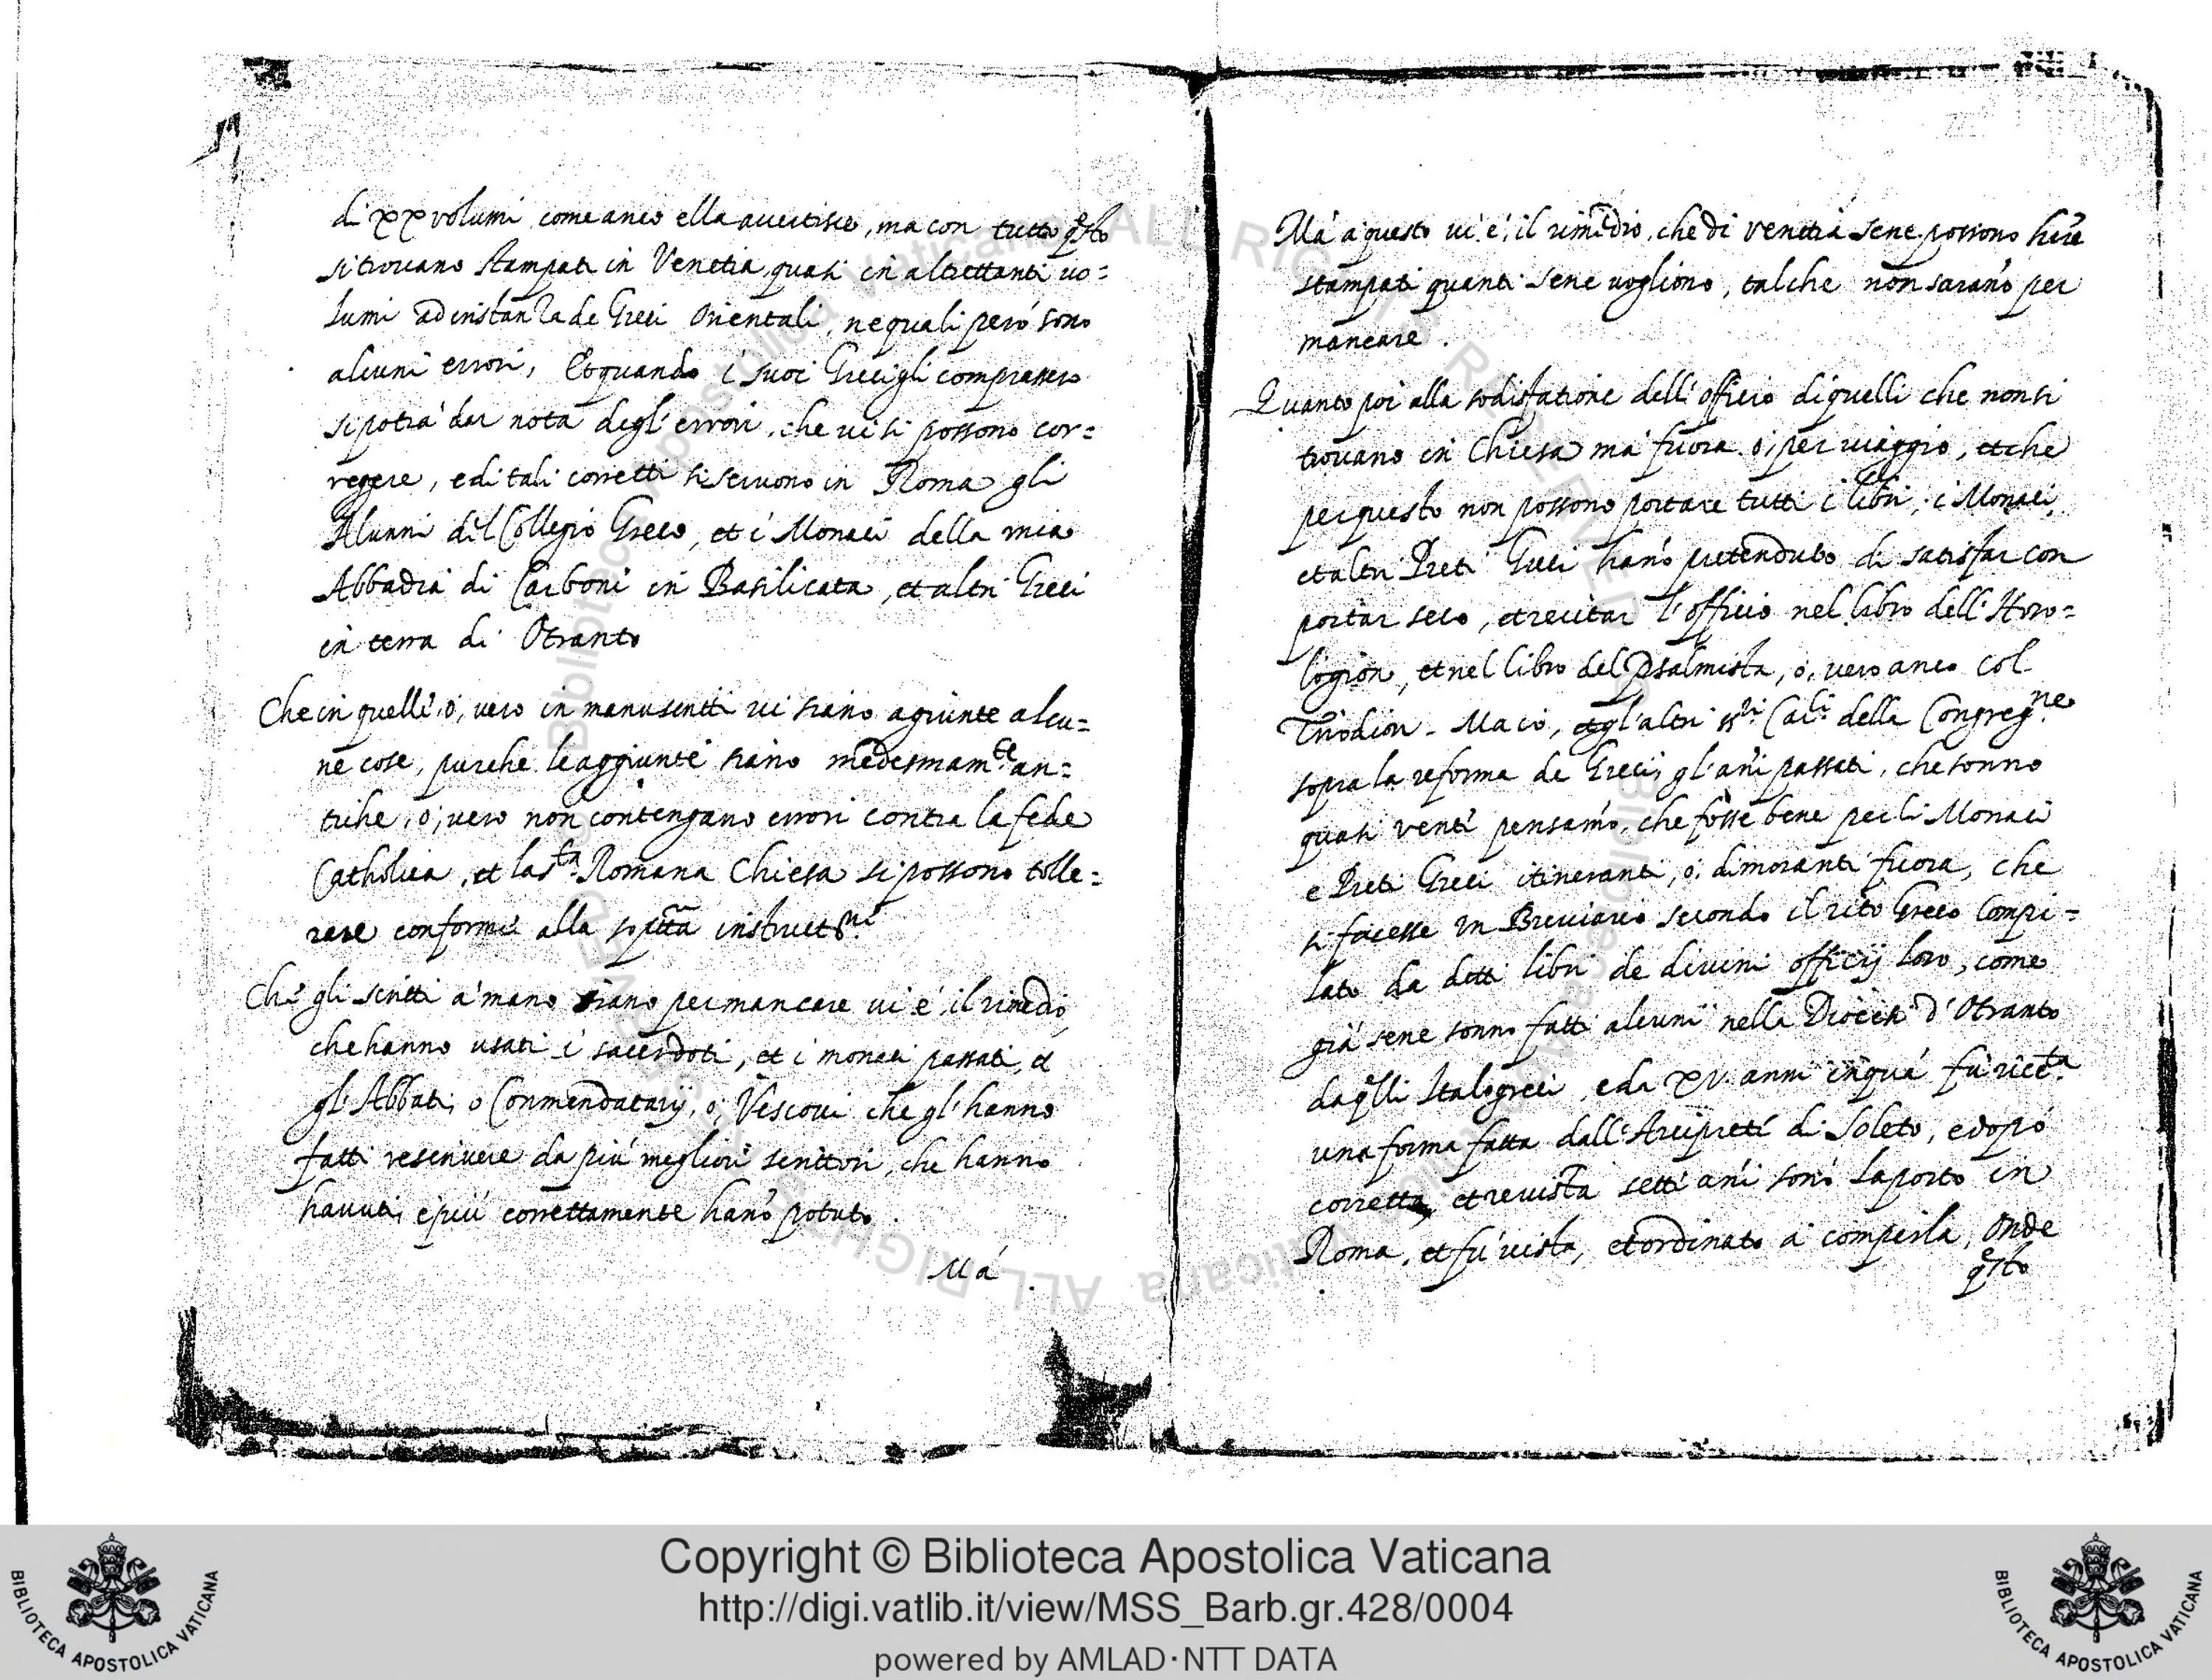 di xx volumi come anco ella avertisce, ma con tutto qsto
si trovano stampati in Venetia quasi in altrettanti vo=
lumi ad instanza de Greci Orientali, ne quali però sono
alcuni errori, Et quando i suoi Greci gli comprassero
si potrà dar nota degl'errori, che vi si possono cor=
regere, e di tali corretti si servono in Roma gli
Alunni del Collegio Greco, et i Monaci della mia
Abbadia di Carboni in Basilicata, et altri Greci
in terra di Otranto
Che in quelli, ò, vero in manuscritti vi siano agiunte alcu=
ne cose, purche le aggiunte siano medesmamte an=
tiche, ò, vero non contengano errori contra la fede
Catholica, et la sta Romana Chiesa si possono tolle=
rare conforme alla sopta instruct.ni
Che gli scritti à mano siano per mancare vi è il rimedio
che hanno usati i sacerdoti, et i monaci passati, et
gl'Abbati, o Conmendatarij, ò, Vescovi che gl'hanno
fatti rescrivere da più megliori scrittori, che hanno
havuti, e più correttamente hano potuto.
Mà
Mà à questo vi è il rimedio, che di venetia sene possono here
stampati quanti sene vogliono, talche non sarano per
mancare.
Quanto poi alla sodisfatione dell'officio di quelli che non si
trovano in Chiesa mà fuora ò, per viaggio, et che
per questo non possono portare tutti i libri, i Monaci,
et altri Preti Greci hano pretenduto di satisfar con
portar seco, et recitar l'officio nel libro dell'Horo=
logion, et nel libro del Psalmista, ò, vero anco col
Triodion. Ma io, et gl'altri ss.ri Car.li della Congreg.ne
sopra la reforma de Greci, gl'ani passati, che sonno
quasi venti pensamo, che fosse bene per li Monaci
e Preti Greci itineranti, ò, dimoranti fuora, che
si facesse un Breviario secondo il rito Greco compi=
lato da detti libri de divini officij loro, come
già sene sonno fatti alcuni nella Diocesi d'Otranto
da qlli Italogreci, e da XV. anni in quà fù ric.ta
una forma fatta dall'Arcipreti di Soleto, e dopò
corretta, et revista setti ani sonò la portò in
Roma, et fù vista, et ordinato à compirla, Onde
qsto
Copyright © Biblioteca Apostolica Vaticana
http://digi.vatlib.it/view/MSS_Barb.gr.428/0004
powered by AMLAD·NTT DATA
BIBLIOTECA APOSTOLICA VATICANA
BIBLIOTECA APOSTOLICA VATICANA